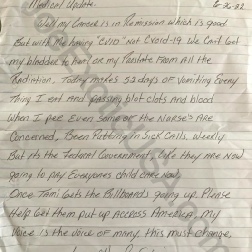 Medical Update. 6-30-22
Well my Cancer is in Remission which is good.
But with me having "CVID" Not Covid-19 We Can't Get
my bladder to heal or my Prostate From All the
Radiation. Today makes 52 days of Vomiting Every
Thing I eat and passing blot clots and blood
When I pee Even some of the Nurse's Are
Concerned, Been Putting In Sick Calls, weekly
But its the Federal Government, Like they Are Now
going to pay Everyones child Care Now.
Once Tami Gets the Billboards going up. Please
Help Get them put up ACCess America, My
Voice is the Voice of many, this must Change.